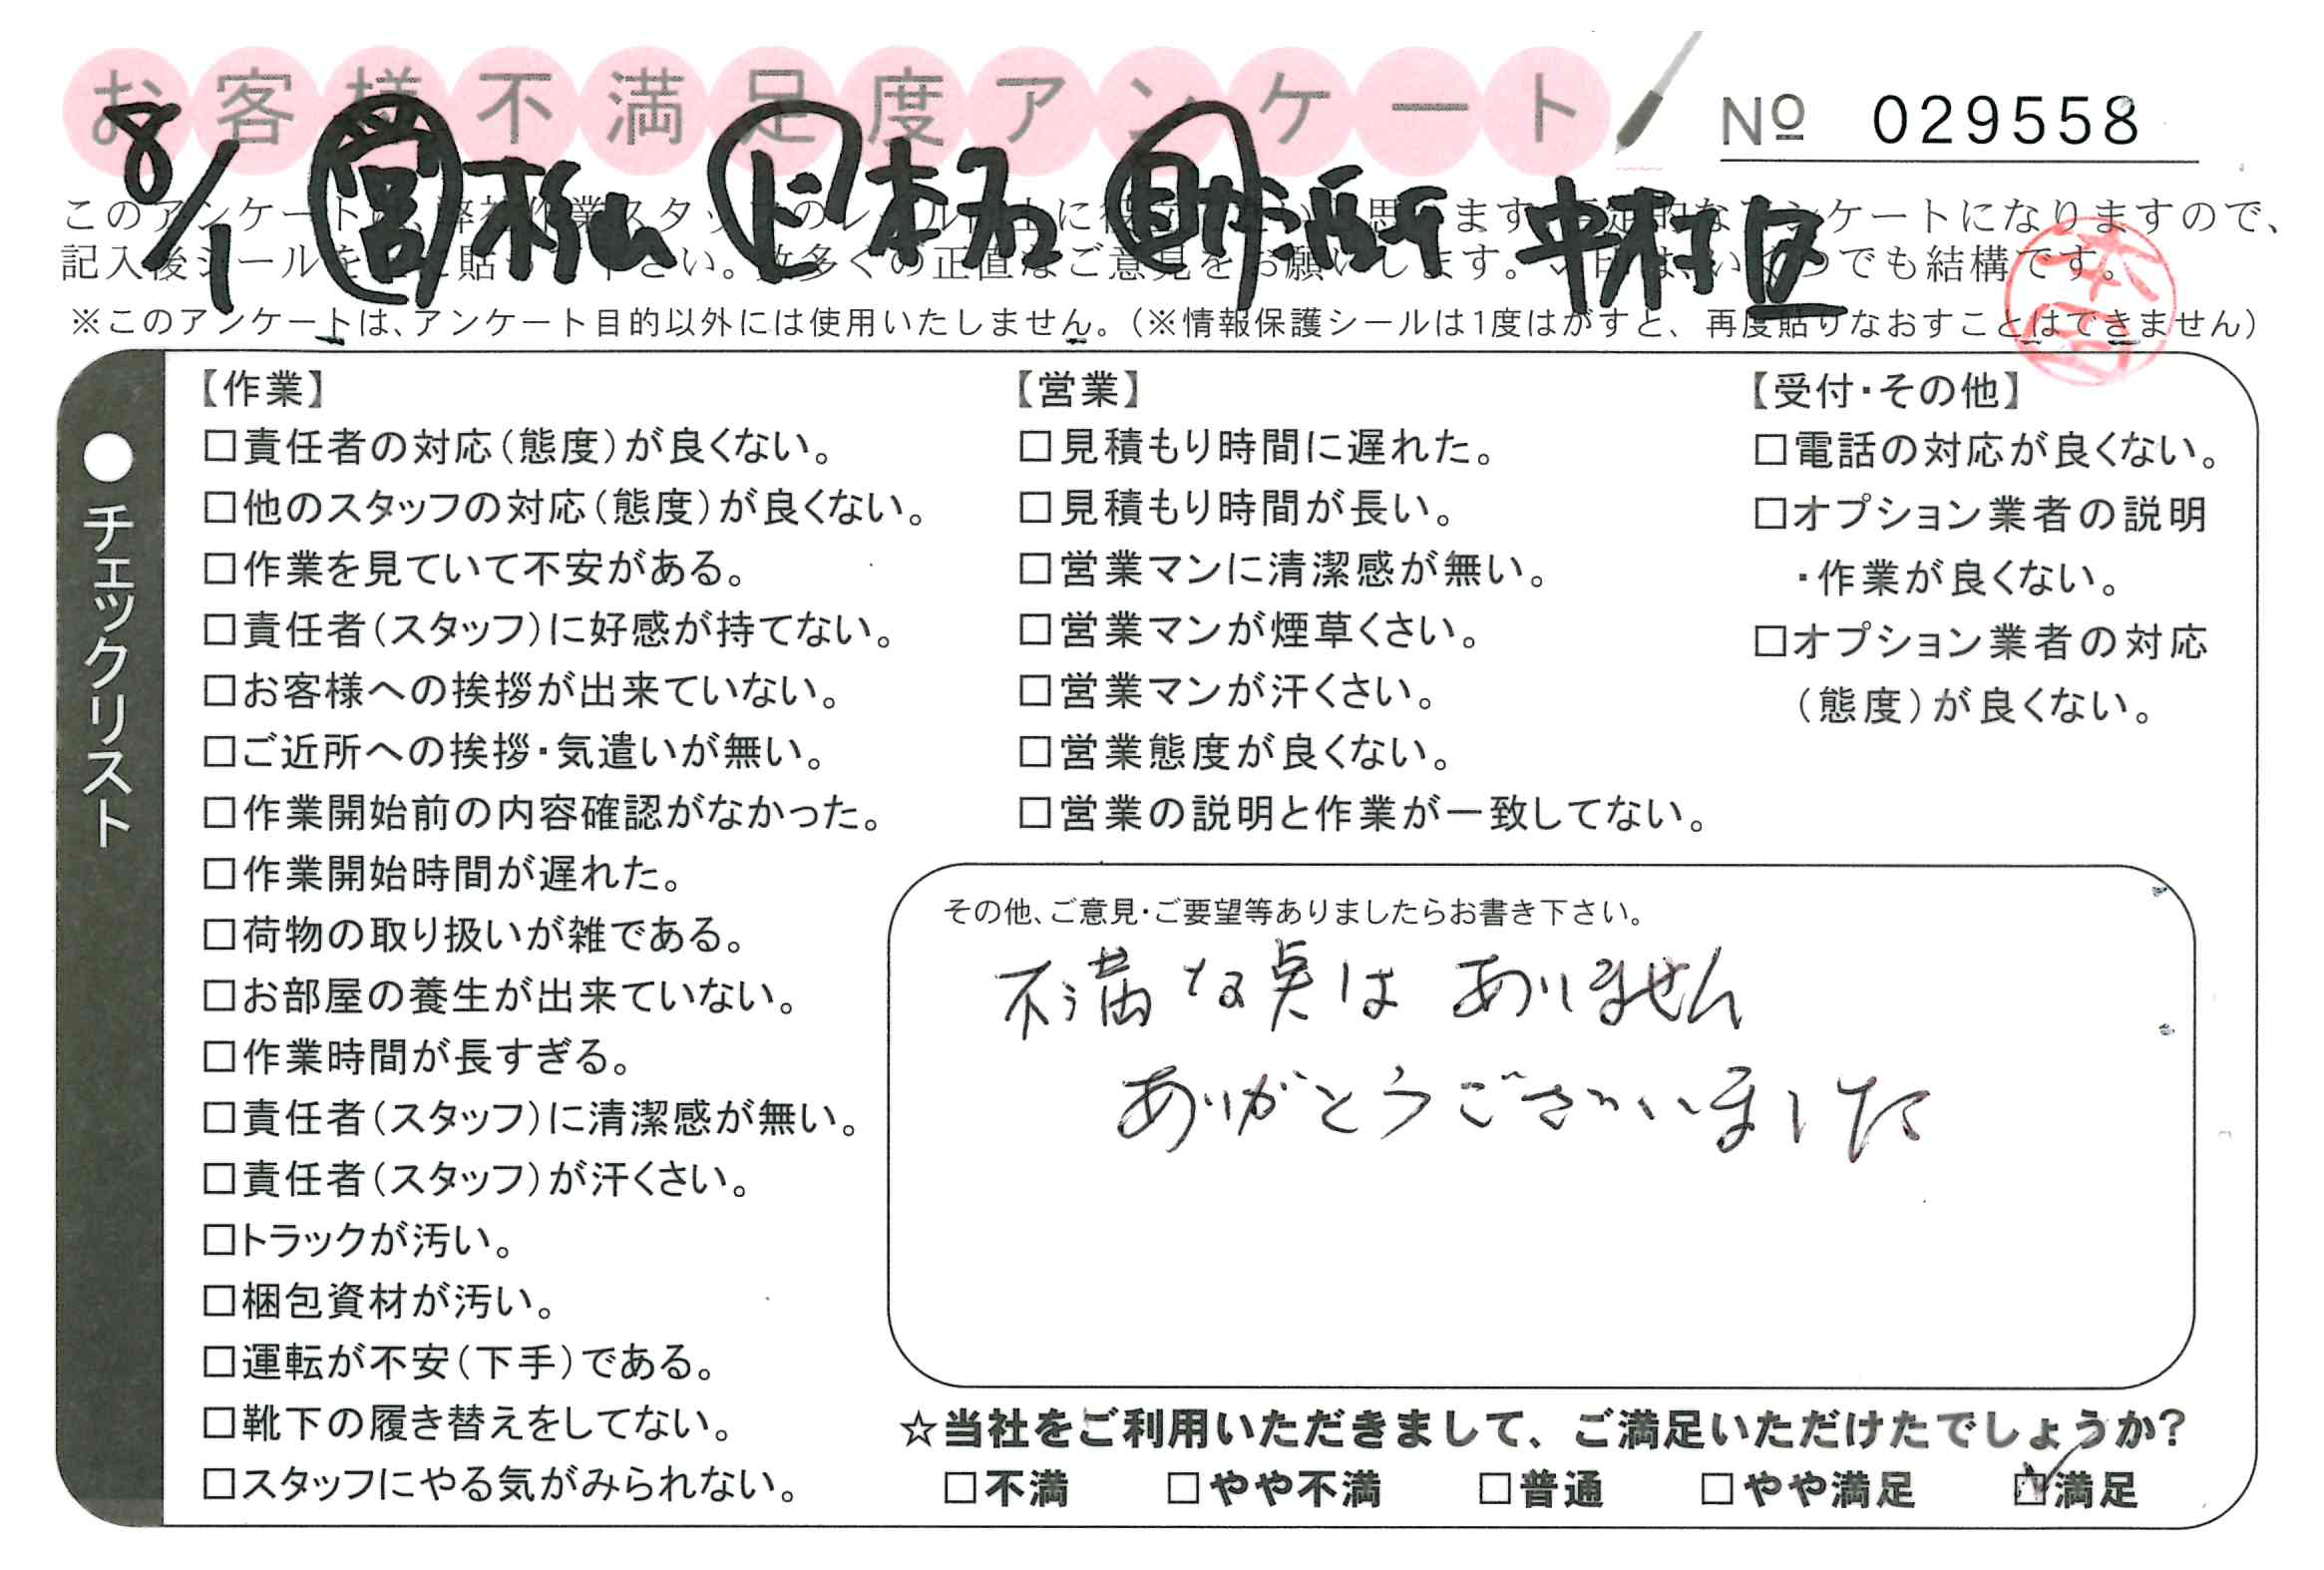 お客様不満足度アンケート
№ 029558
8/1 営 杉山 ド 本多 助 浜所 中村区
このアンケートは、弊社作業スタッフのレベル向上に役立てたいと思います。 アンケートになりますので、
記入後シールを 貼って下さい。数多くの正直なご意見をお願いします。 いくつでも結構です。
※このアンケートは、アンケート目的以外には使用いたしません。（※情報保護シールは1度はがすと、再度貼りなおすことはできません）
●チェックリスト
【作業】
□責任者の対応（態度）が良くない。
□他のスタッフの対応（態度）が良くない。
□作業を見ていて不安がある。
□責任者（スタッフ）に好感が持てない。
□お客様への挨拶が出来ていない。
□ご近所への挨拶・気遣いが無い。
□作業開始前の内容確認がなかった。
□作業開始時間が遅れた。
□荷物の取り扱いが雑である。
□お部屋の養生が出来ていない。
□作業時間が長すぎる。
□責任者（スタッフ）に清潔感が無い。
□責任者（スタッフ）が汗くさい。
□トラックが汚い。
□梱包資材が汚い。
□運転が不安（下手）である。
□靴下の履き替えをしてない。
□スタッフにやる気がみられない。
【営業】
□見積もり時間に遅れた。
□見積もり時間が長い。
□営業マンに清潔感が無い。
□営業マンが煙草くさい。
□営業マンが汗くさい。
□営業態度が良くない。
□営業の説明と作業が一致してない。
【受付・その他】
□電話の対応が良くない。
□オプション業者の説明
・作業が良くない。
□オプション業者の対応
（態度）が良くない。
その他、ご意見・ご要望等ありましたらお書き下さい。
不満な点は ありません
ありがとうございました
☆当社をご利用いただきまして、ご満足いただけたでしょうか？
□不満 □やや不満 □普通 □やや満足 ☑満足